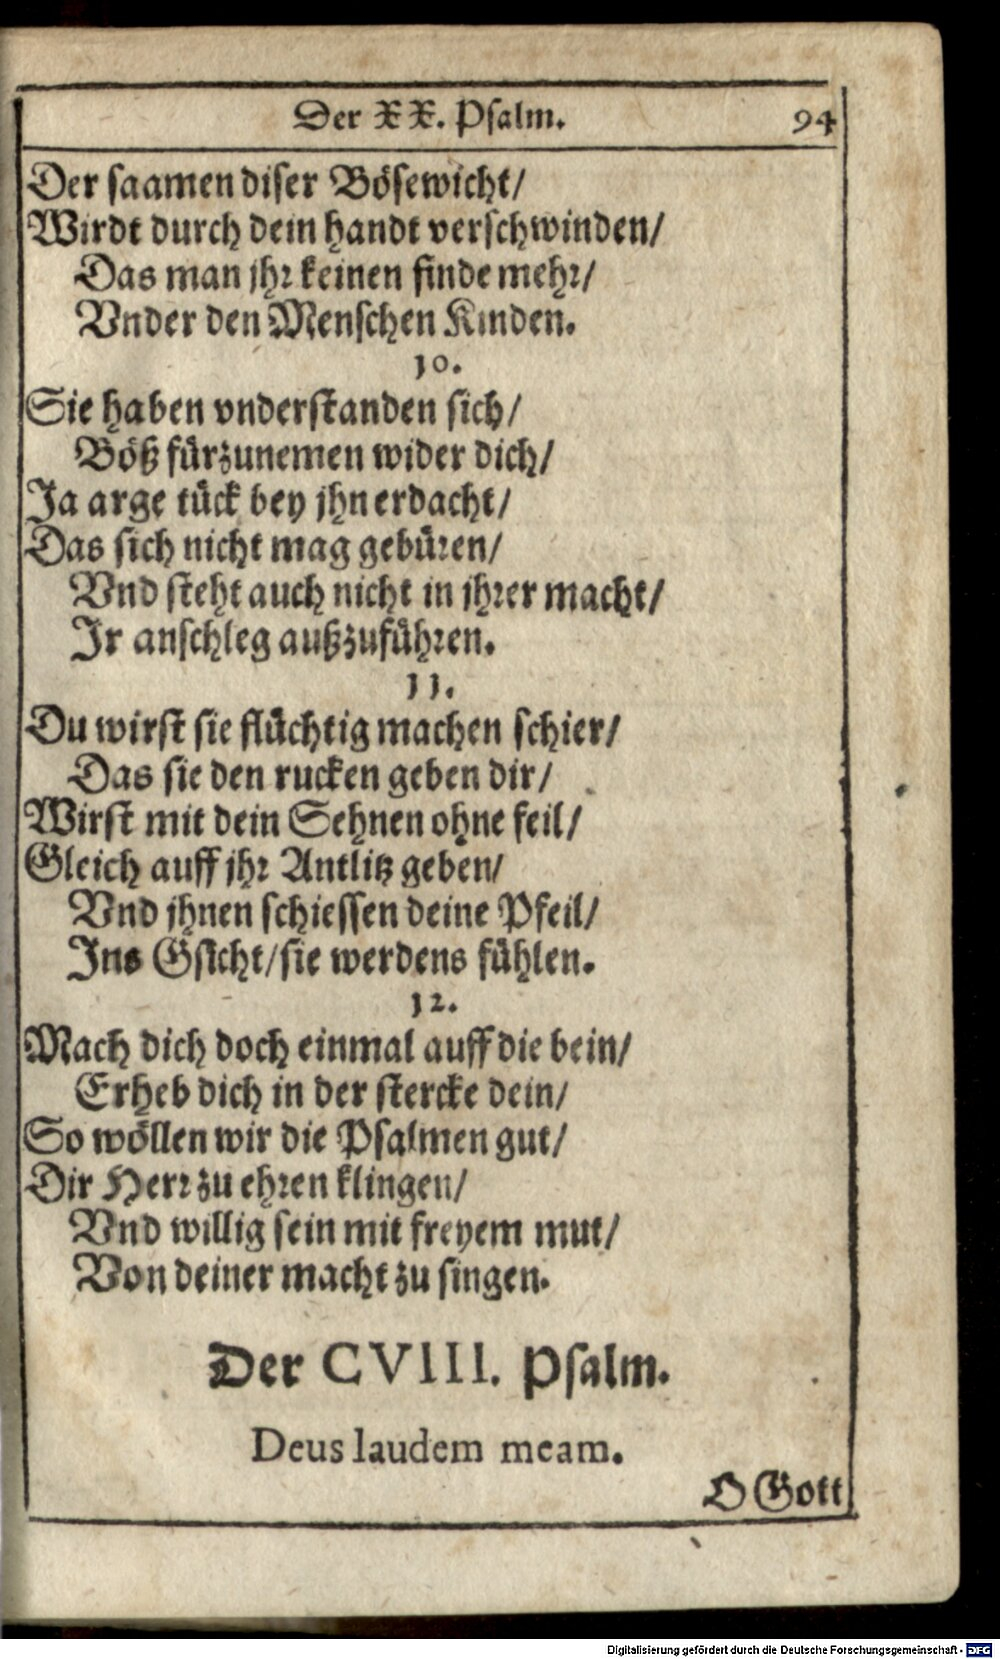 Der XX. Psalm. 94
Der saamen diser Bösewicht/
Wirdt durch dein handt verschwinden/
Das man jhr keinen finde mehr/
Vnder den Menschen Kinden.
10.
Sie haben vnderstanden sich/
Böß fürzunemen wider dich/
Ja arge tück bey jhn erdacht/
Das sich nicht mag gebüren/
Vnd steht auch nicht in jhrer macht/
Jr anschleg außzuführen.
11.
Du wirst sie flüchtig machen schier/
Das sie den rucken geben dir/
Wirst mit dein Sehnen ohne feil/
Gleich auff jhr Antlitz geben/
Vnd jhnen schiessen deine Pfeil/
Jns Gsicht/sie werdens fühlen.
12.
Mach dich doch einmal auff die bein/
Erheb dich in der stercke dein/
So wöllen wir die Psalmen gut/
Dir Herr zu ehren klingen/
Vnd willig sein mit freyem mut/
Von deiner macht zu singen.
Der CVIII. Psalm.
Deus laudem meam.
O Gott
Digitalisierung gefördert durch die Deutsche Forschungsgemeinschaft - DFG